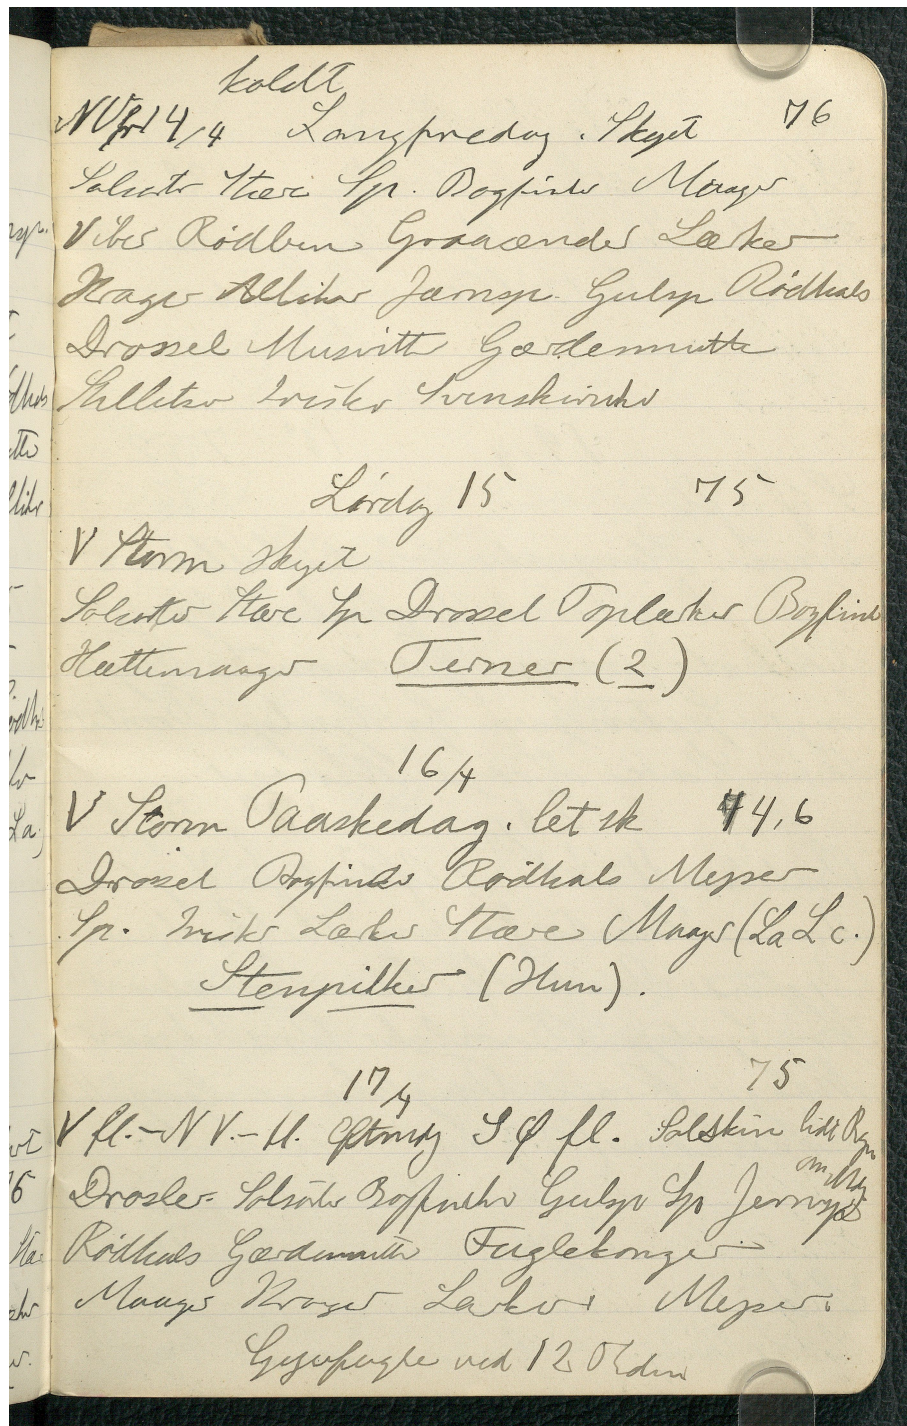 koldt
NV fr 14/4 Langfredag. Skyet 76
Solsorte Stære Sp. Bogfinke Maager
Viber Rødben Graaænder Lærker
Krager Alliker Jernsp. Gulsp Rødhals
Drossel Musvitte Gærdesmutte
Stillitser Irisker Svenskvinke
Lørdag 15 75
V Storm skyet
Solsorter Stære Sp Drossel Toplærker Bogfink
Hættemaager Terner (2)
16/4
V Storm Paaskedag. let sk 74,6
Drossel Bogfinke Rødhals Mejser
Sp. Irisker Lærker Stære Maager (La L c.)
Stenpikker (Hun).
17/4
75
V fl.-NV.- fl. Eftmdg SØ fl. Solskin lidt Regn
om
Drosler Solsorter Bogfinker Gulsp Sp Jernsp
Rødhals Gærdesmutte Fuglekonger
Maager Krager Lærker Mejser.
ved 12 Tiden